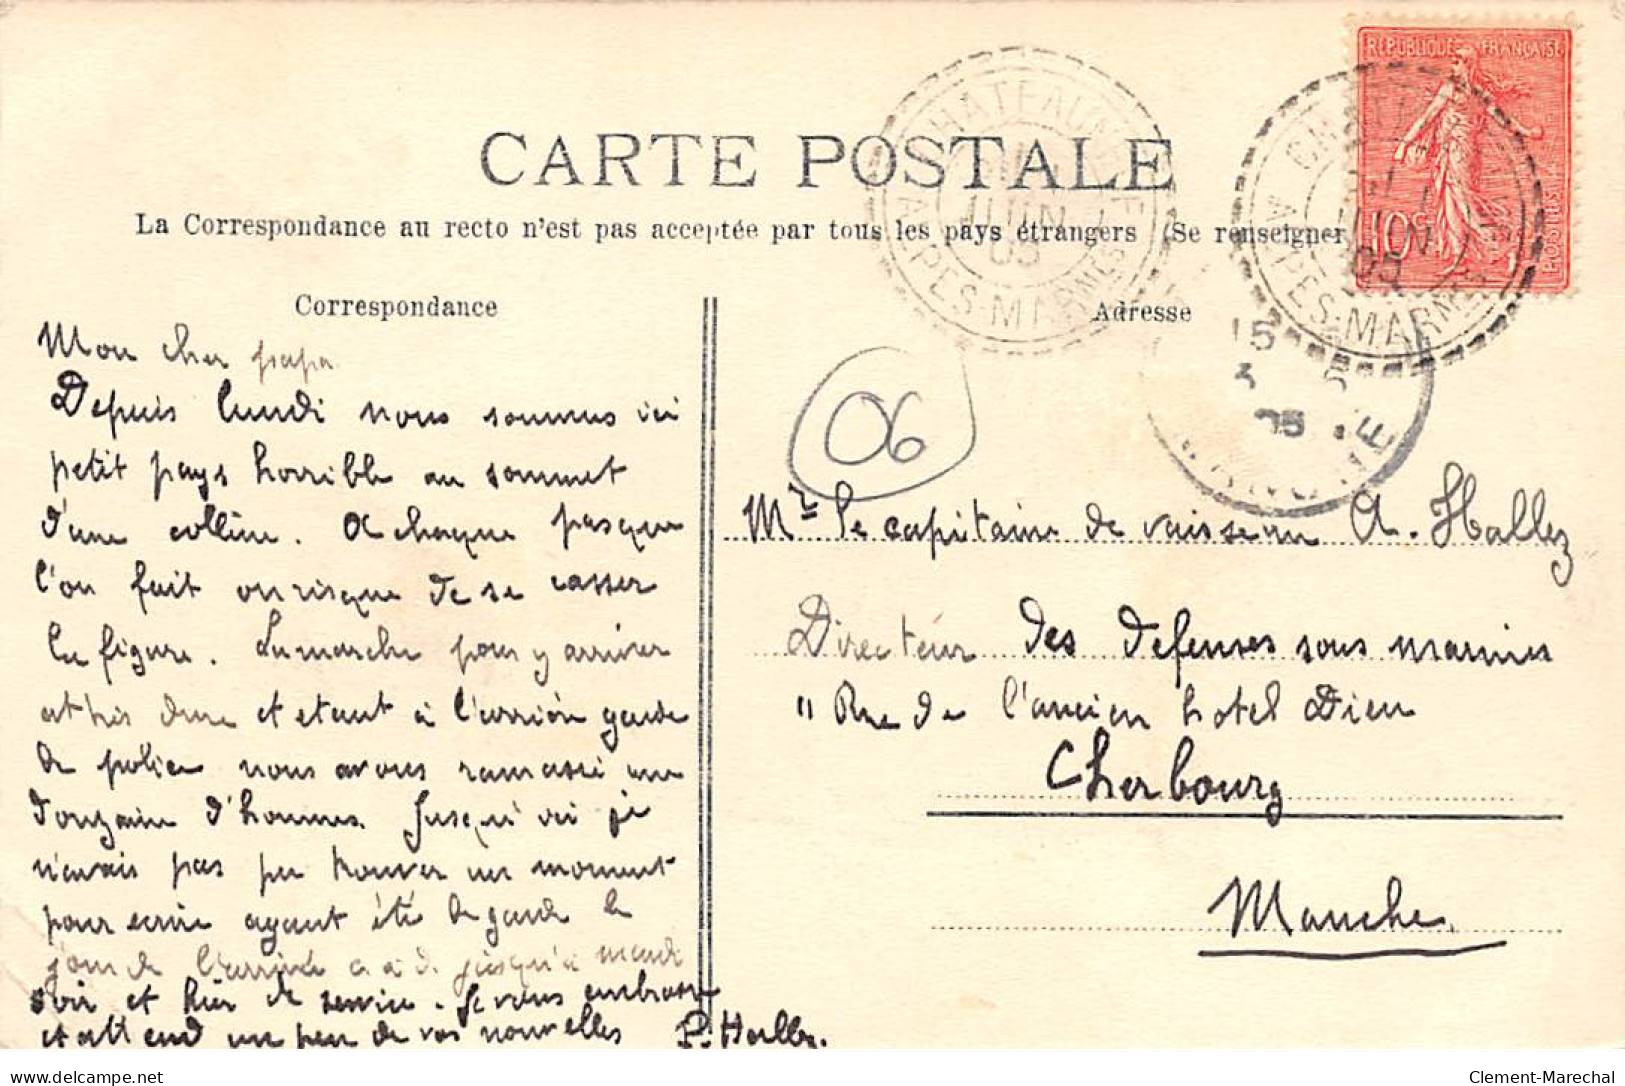 CARTE POSTALE
La Correspondance au recto n'est pas acceptée par tous les pays étrangers (Se renseigner
RÉPUBLIQUE FRANÇAISE
10c
POSTES
CHATEAUNEUF
1 JUIN 05
ALPES-MARMES
ALPES-MARMES
JUIN
05
Correspondance
Adresse
15
5
05
MANCHE
06
Mon cher papa
Depuis lundi nous sommes ici
petit pays horrible au sommet
d'une colline. A chaque pas que
l'on fait on risque de se casser
la figure. La marche pour y arriver
a très dure et etant à l'arrière garde
de police nous avons ramassé une
douzaine d'hommes. Jusqu'ici je
n'avais pas pu trouver un moment
pour ecrire ayant été de garde le
jour de l'arrivée c.a.d. jusqu'à mardi
soir et hier de service. Je vous embrasse
et attend un peu de vos nouvelles P. Hallez.
Mr le capitaine de vaisseau A. Hallez
Directeur des defenses sous marines
11 Rue de l'ancien hotel Dieu
Cherbourg
Manche
www.delcampe.net
Clement-Marechal